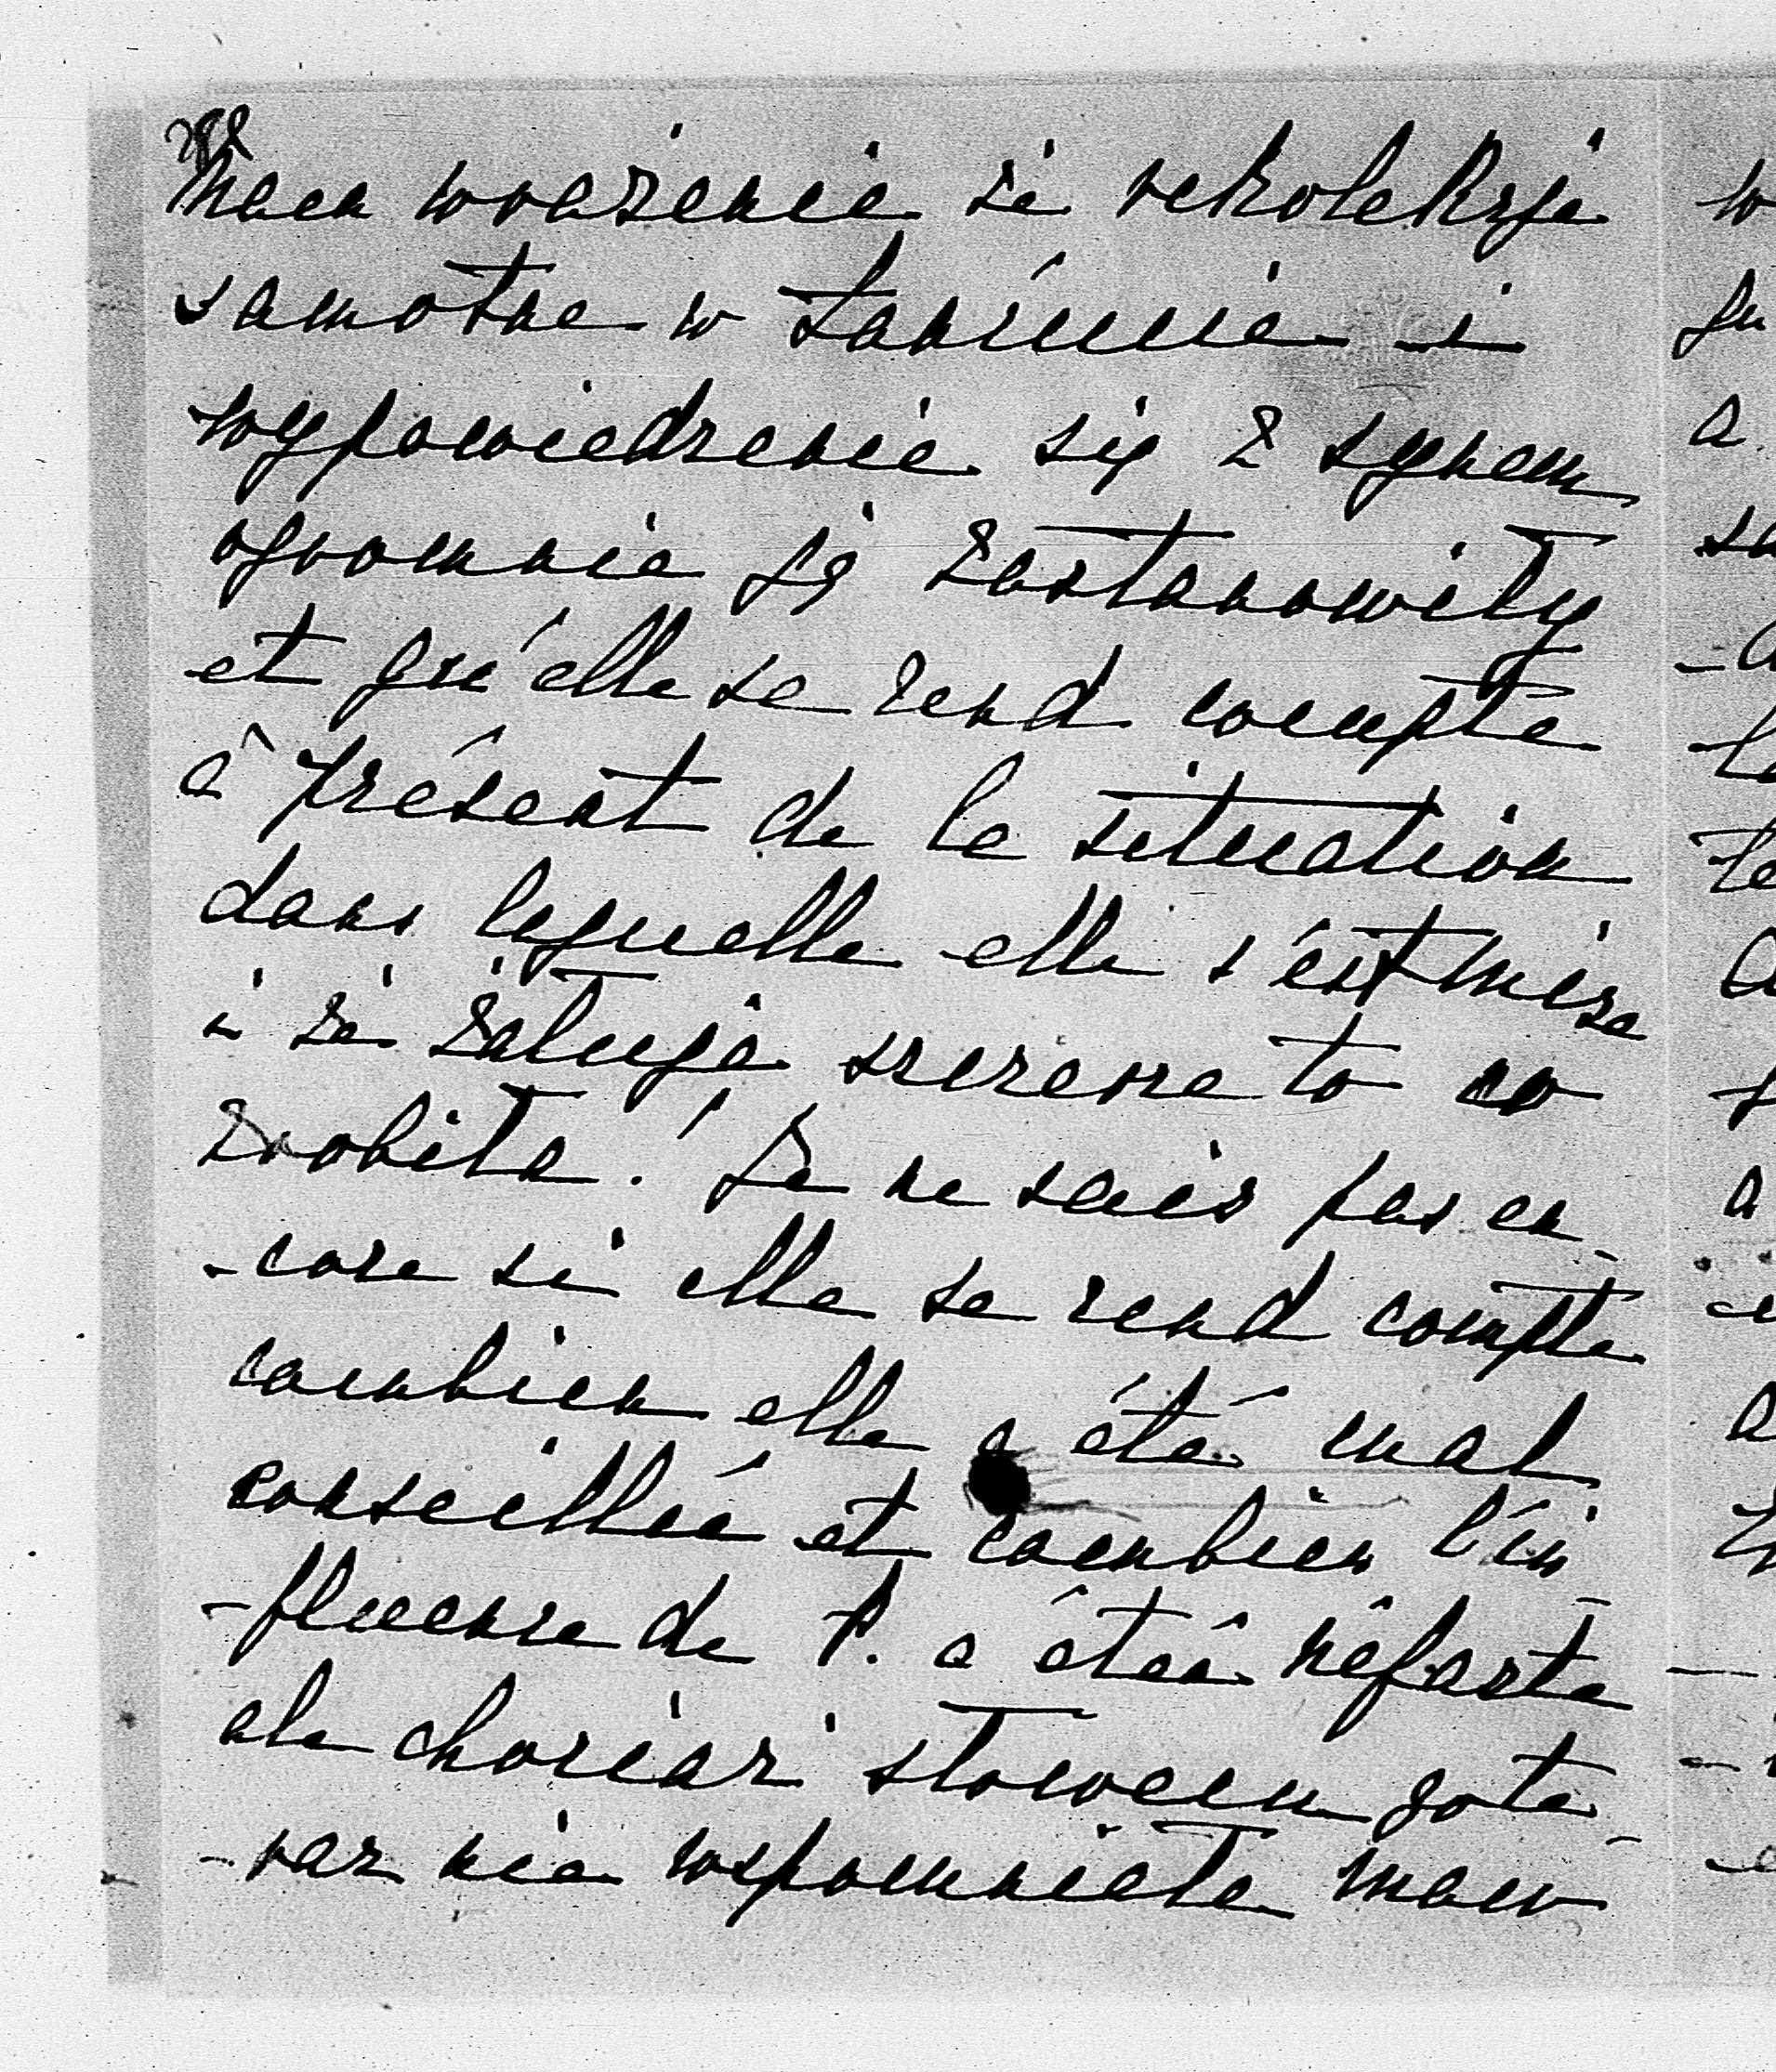 Mam wrażenie że rekolekcje
samotne w Łańcucie i
wypowiedzenie się z synem
ogromnie ją zastanowiły
et qu'elle se rend compte
à présent de la situation
dans laquelle elle s'est mise
i że żałuje szczerze to co
zrobiła! Je ne sais pas en-
-core si elle se rend compte
combien elle a été mal
conseillée et combien l'in-
-fluence de P. a été néfaste
ale chociaż słowem
-raz nie wspomniała mam